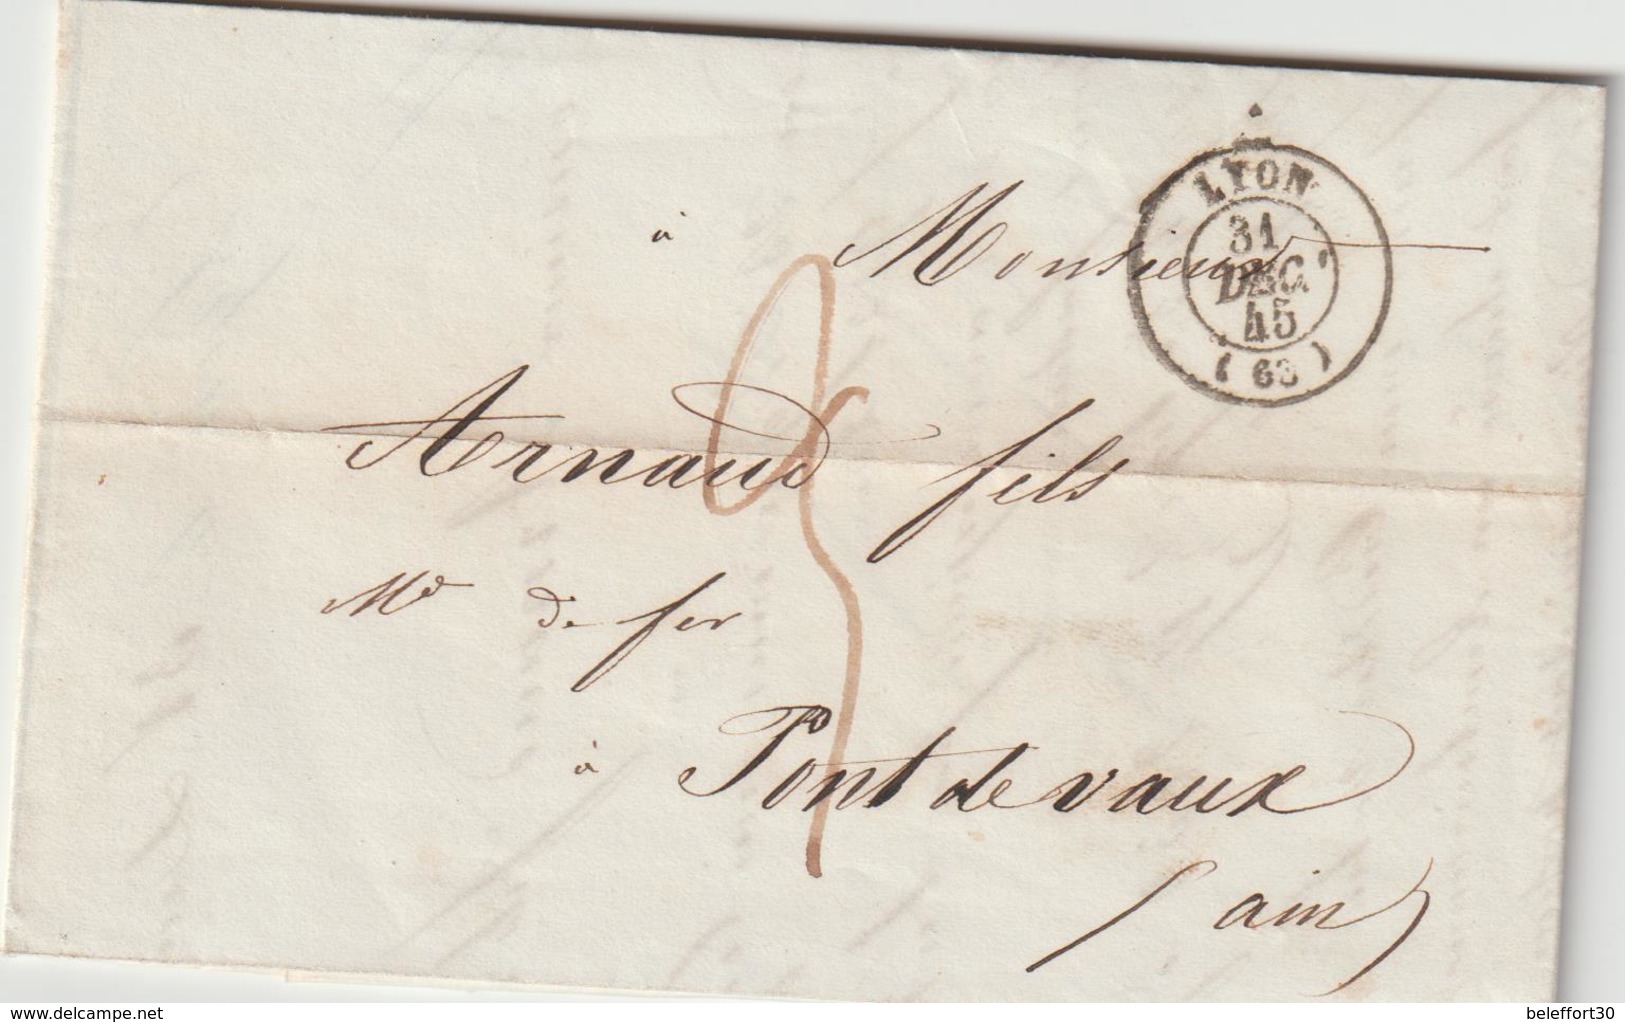 LYON
31
DEC.
45
(68)
à Monsieur
Arnaud fils
Md de fer
à Pont de vaux
(ain)
www.delcampe.net
beleffort30